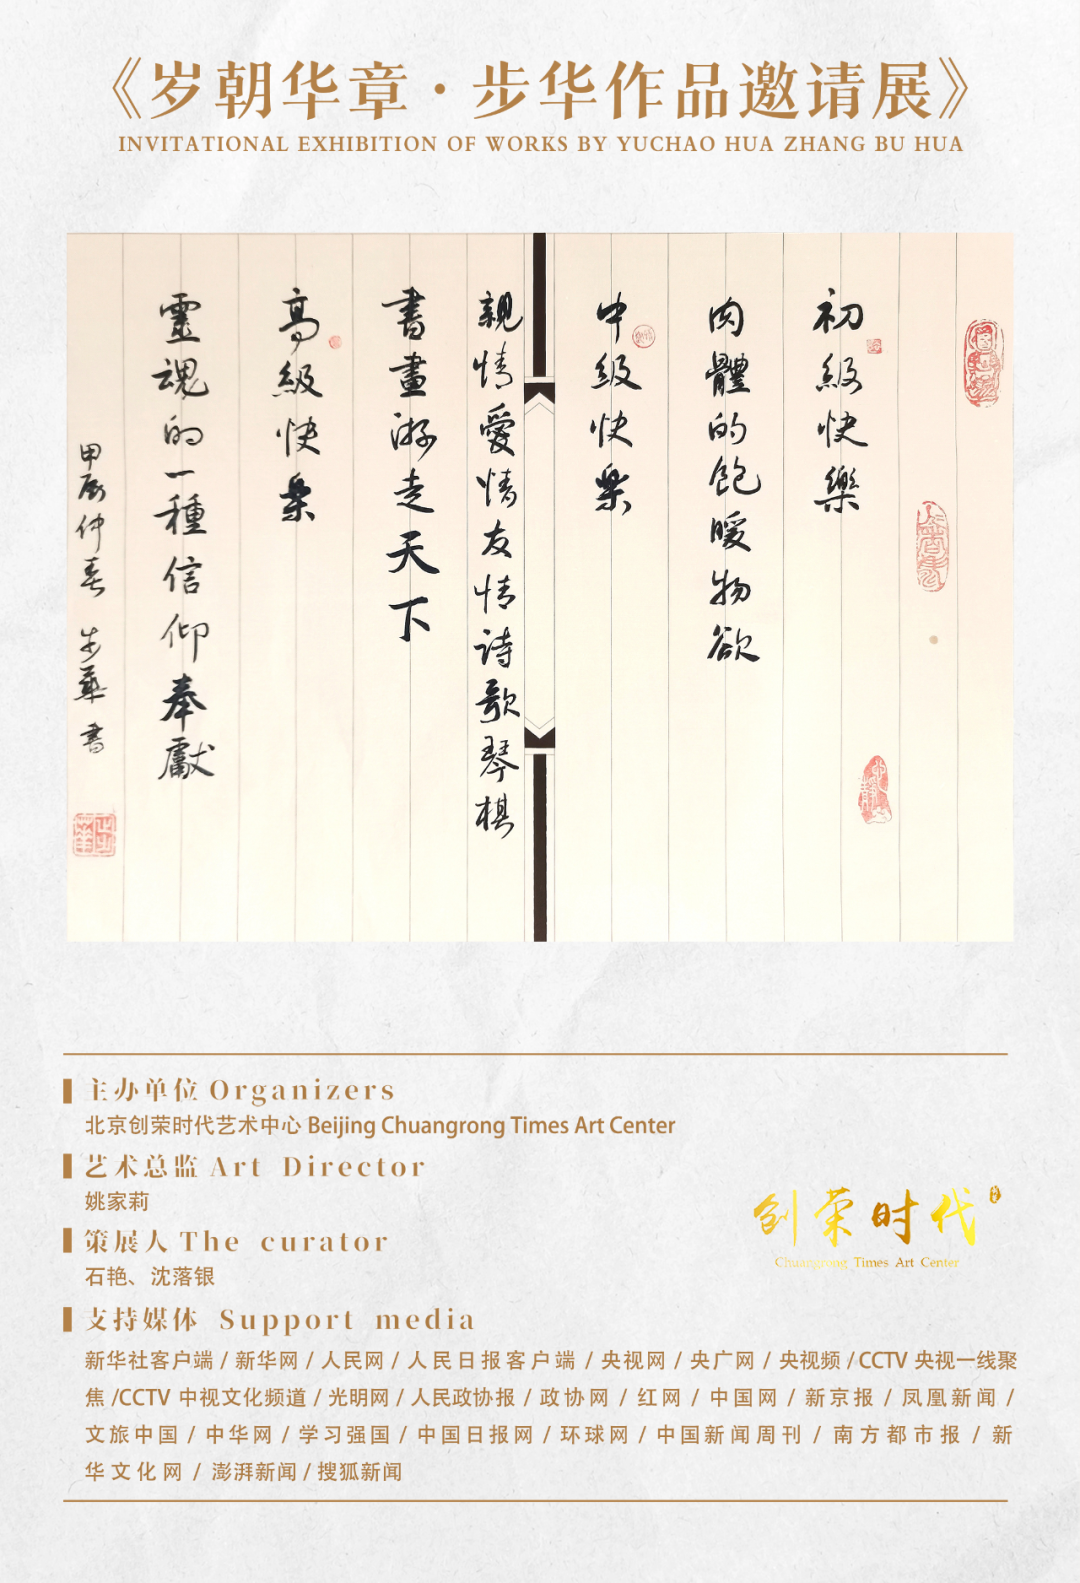 《岁朝华章·步华作品邀请展》
INVITATIONAL EXHIBITION OF WORKS BY YUCHAO HUA ZHANG BU HUA
初級快樂
肉體的飽暖物欲
中級快樂
親情愛情友情詩歌琴棋
書畫游走天下
高級快樂
靈魂的一種信仰奉獻
甲辰仲春 步華書
主办单位 Organizers
北京创荣时代艺术中心 Beijing Chuangrong Times Art Center
艺术总监 Art Director
姚家莉
策展人 The curator
石艳、沈落银
创荣时代
Chuangrong Times Art Center
支持媒体 Support media
新华社客户端 / 新华网 / 人民网 / 人民日报客户端 / 央视网 / 央广网 / 央视频 / CCTV 央视一线聚
焦 /CCTV 中视文化频道 / 光明网 / 人民政协报 / 政协网 / 红网 / 中国网 / 新京报 / 凤凰新闻 /
文旅中国 / 中华网 / 学习强国 / 中国日报网 / 环球网 / 中国新闻周刊 / 南方都市报 / 新
华文化网 / 澎湃新闻 / 搜狐新闻